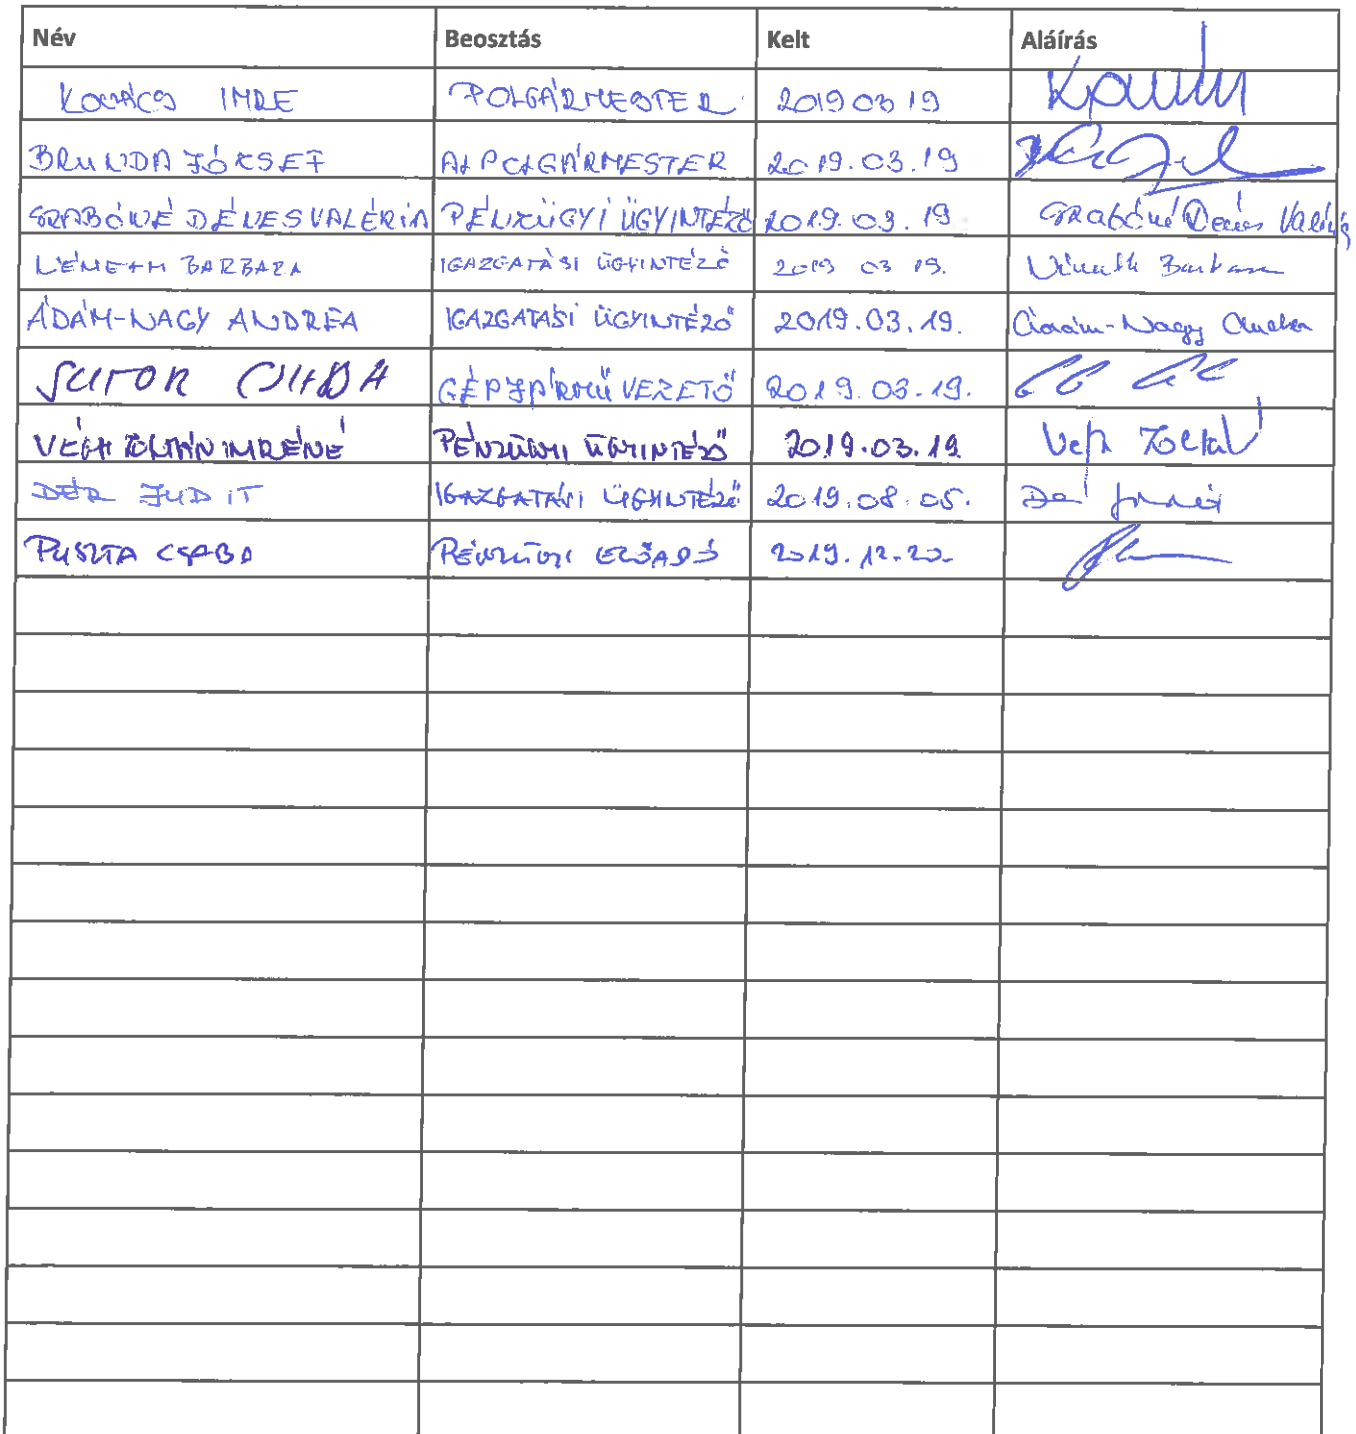 Név Beosztás Kelt Aláírás
KOVÁCS IMRE POLGÁRMESTER 2019 03 19
BRUNDA JÓZSEF ALPOLGÁRMESTER 2019.03.19
SZABÓNÉ DÉNES VALÉRIA PÉNZÜGYI ÜGYINTÉZŐ 2019.03.19 Szabóné Dénes Valéria
NÉMETH BARBARA IGAZGATÁSI ÜGYINTÉZŐ 2019 03 19. Németh Barbara
ÁDÁM-NAGY ANDREA IGAZGATÁSI ÜGYINTÉZŐ 2019.03.19. Ádám-Nagy Andrea
SUTOR GÉPJÁRMŰ VEZETŐ 2019.03.19.
VÉGH ZOLTÁN IMRÉNÉ PÉNZÜGYI ÜGYINTÉZŐ 2019.03.19.
DÉR JUDIT IGAZGATÁSI ÜGYINTÉZŐ 2019.08.05. Dér Judit
PUSZTA CSABA PÉNZÜGYI ELŐADÓ 2019.12.20.